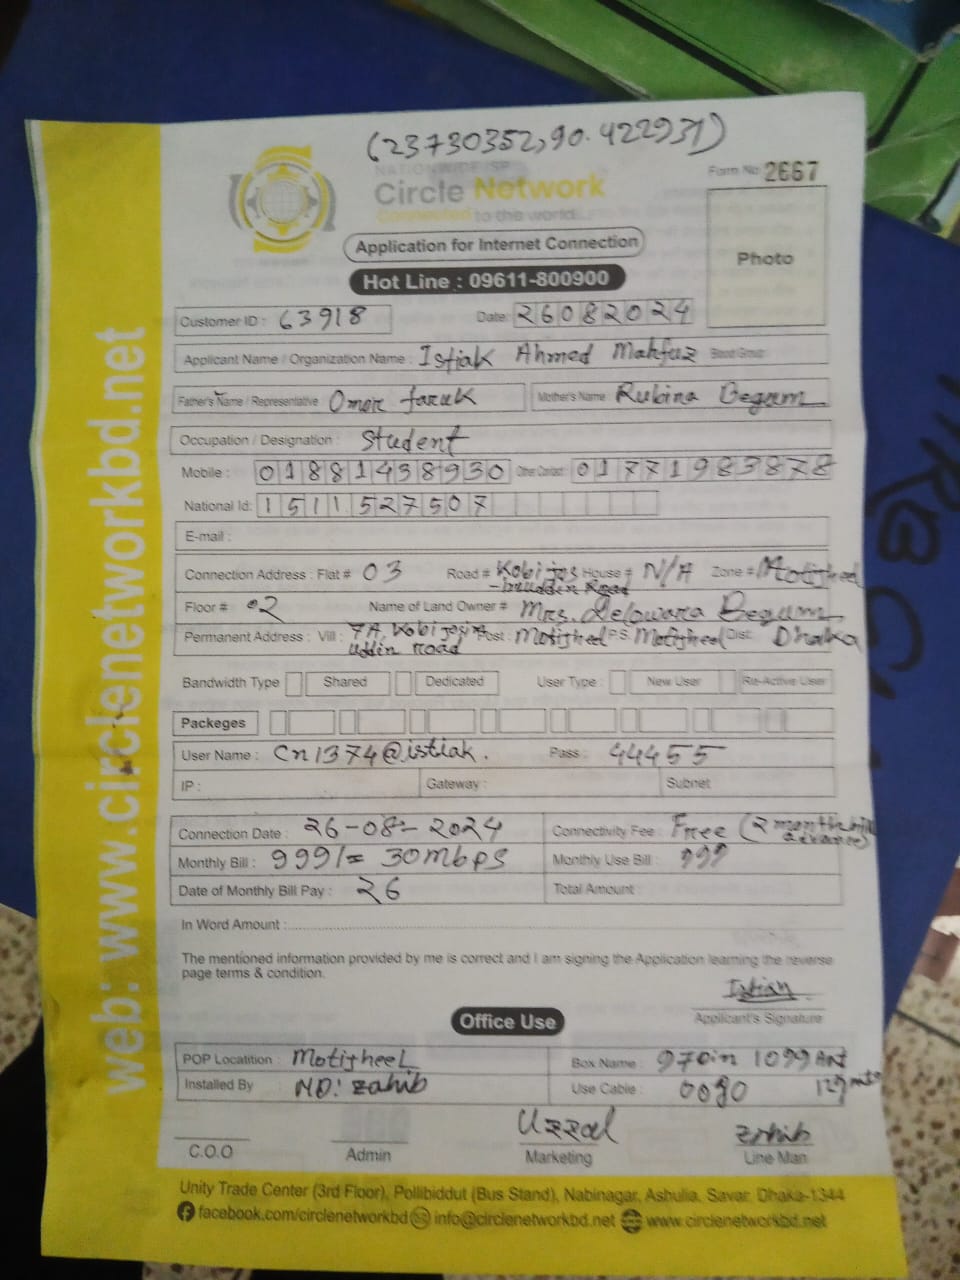 (23730352,90.422931)
NATIONWIDE ISP
Form No 2667
Circle Network
Connected to the world
Application for Internet Connection
Photo
Hot Line : 09611-800900
Customer ID : 63918 Date: 26082024
Applicant Name / Organization Name : Istiak Ahmed Mahfuz Blood Group:
Father's Name / Representative Omor faruk Mother's Name : Rubina Begum
Occupation / Designation : Student
Mobile : 01881438930 Other Contact: 01771983878
National Id: 1511527507
E-mail :
Connection Address : Flat # 03 Road # Kobi jos House # N/A Zone # Motijheel
-imuddin Road
Floor # 02 Name of Land Owner # Mrs. Delowara Begum
Permanent Address : Vill : 7A, Kobi josim Post : Motijheel P.S. Motijheel Dist: Dhaka
uddin road
Bandwidth Type Shared Dedicated User Type : New User Re-Active User
Packeges
User Name : Cn1374@istiak. Pass : 44455
IP : Gateway : Subnet
Connection Date : 26-08-2024 Connectivity Fee : Free (2 month bill
advance)
Monthly Bill : 999/= 30mbps Monthly Use Bill : 999
Date of Monthly Bill Pay : 26 Total Amount :
In Word Amount :
The mentioned information provided by me is correct and I am signing the Application learning the reverse
page terms & condition.
Applicant's Signature
Office Use
POP Locatition : Motijheel Box Name :
Installed By : MD: Zahib Use Cable :
Uzzal Zahib
C.O.O Admin Marketing Line Man
Unity Trade Center (3rd Floor), Pollibiddut (Bus Stand), Nabinagar, Ashulia, Savar, Dhaka-1344
facebook.com/circlenetworkbd info@circlenetworkbd.net www.circlenetworkbd.net
web: www.circlenetworkbd.net